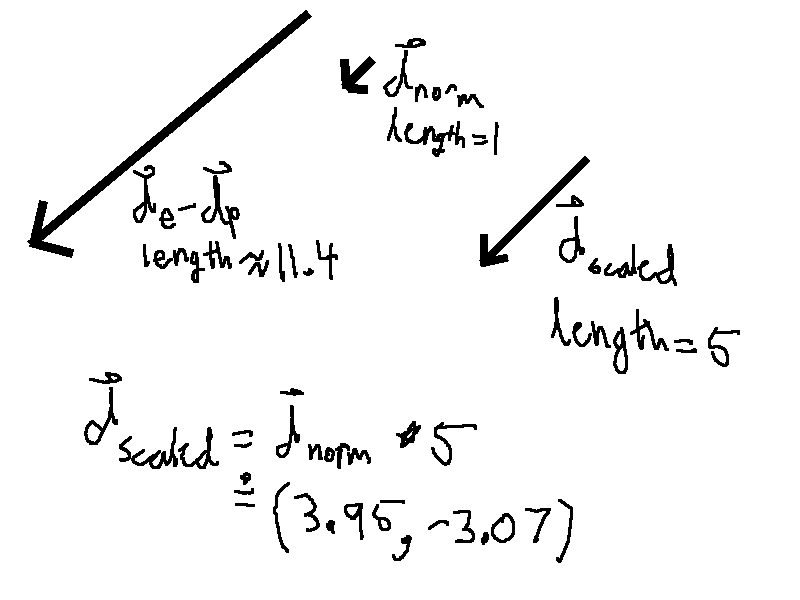 d⃗norm
length=1
d⃗e-d⃗p
length≈11.4
d⃗scaled
length=5
d⃗scaled = d⃗norm * 5
≐ (3.95, -3.07)